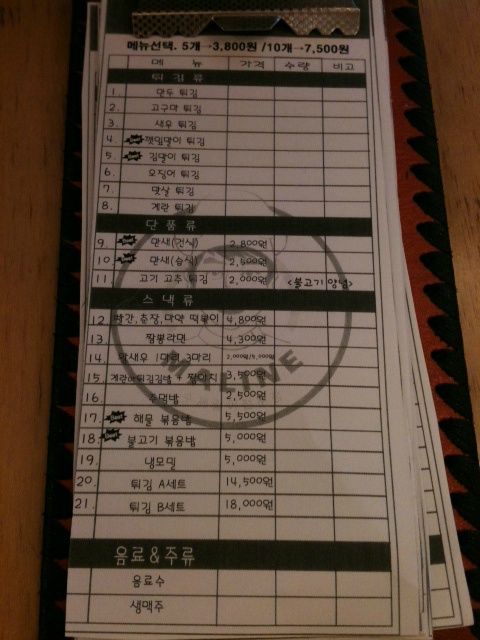 메뉴선택. 5개→3,800원 /10개→7,500원
메 뉴 가격 수량 비고
튀김류
1. 만두 튀김
2. 고구마 튀김
3. 새우 튀김
4. 깻잎말이 튀김
5. 김말이 튀김
6. 오징어 튀김
7. 맛살 튀김
8. 계란 튀김
단품류
9. 만새(건식) 2,800원
10 만새(습식) 2,500원
11 고기 고추 튀김 2,000원 <불고기 양념>
스낵류
12 빨간,춘장,마약 떡볶이 4,800원
13. 짬뽕라면 4,300원
14. 왕새우 1마리,3마리 2,000원/5,000원
15. 계란야튀김김밥 + 짱아치 3,500원
16. 주먹밥 2,500원
17. 해물 볶음밥 5,500원
18. 불고기 볶음밥 5,000원
19. 냉모밀 5,000원
20. 튀김 A세트 14,500원
21. 튀김 B세트 18,000원
MALINE
음료&주류
음료수
생맥주